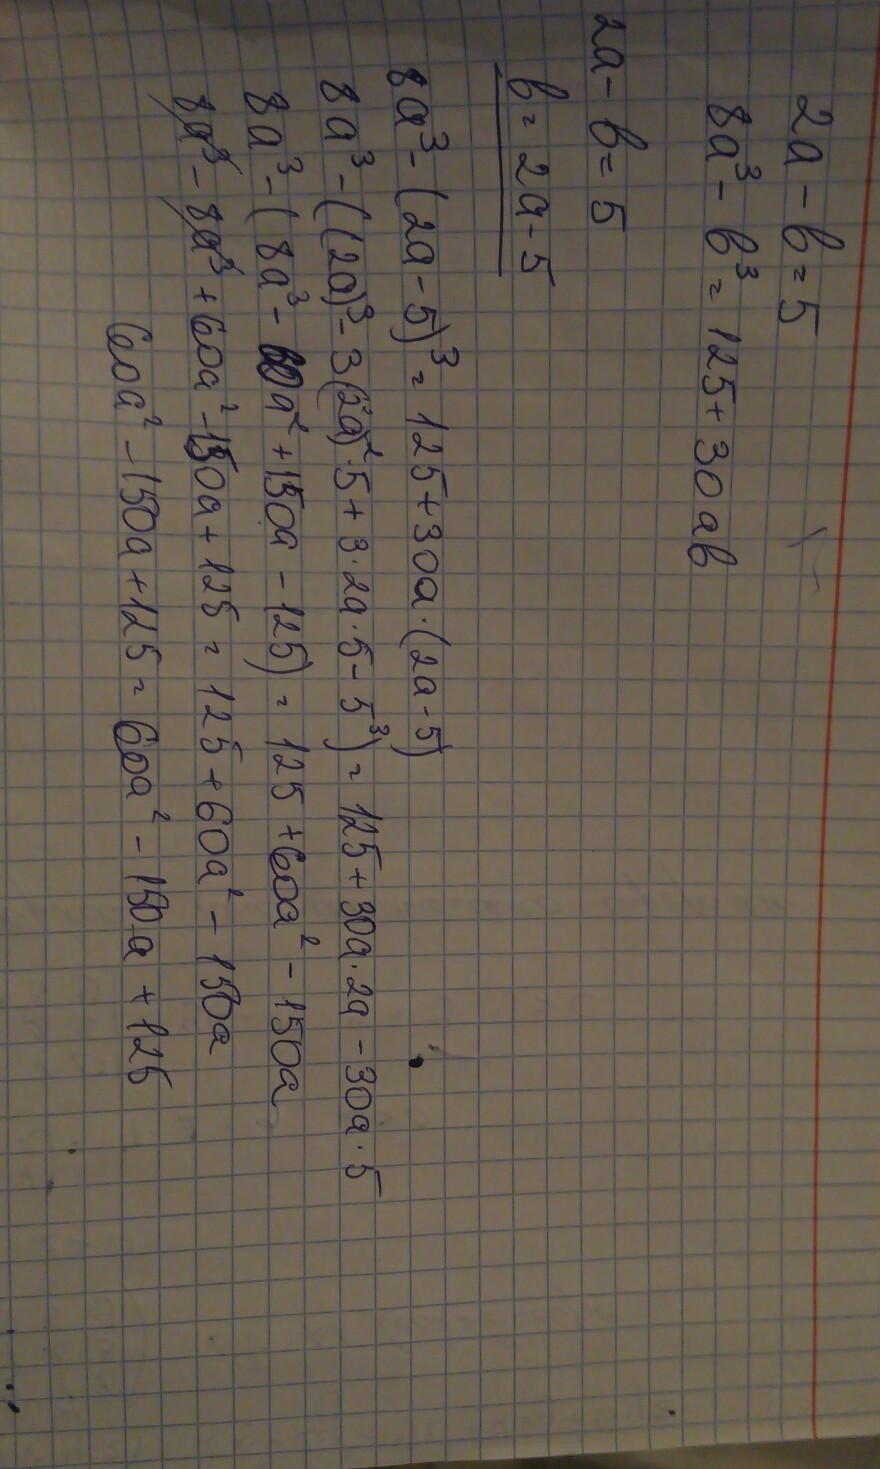 2a - b = 5
8a³ - b³ = 125 + 30ab
2a - b = 5
b = 2a - 5
8a³ - (2a - 5)³ = 125 + 30a · (2a - 5)
8a³ - ((2a)³ - 3(2a)² · 5 + 3 · 2a · 5 - 5³) = 125 + 30a · 2a - 30a · 5
8a³ - (8a³ - 60a² + 150a - 125) = 125 + 60a² - 150a
8a³ - 8a³ + 60a² - 150a + 125 = 125 + 60a² - 150a
60a² - 150a + 125 = 60a² - 150a + 125